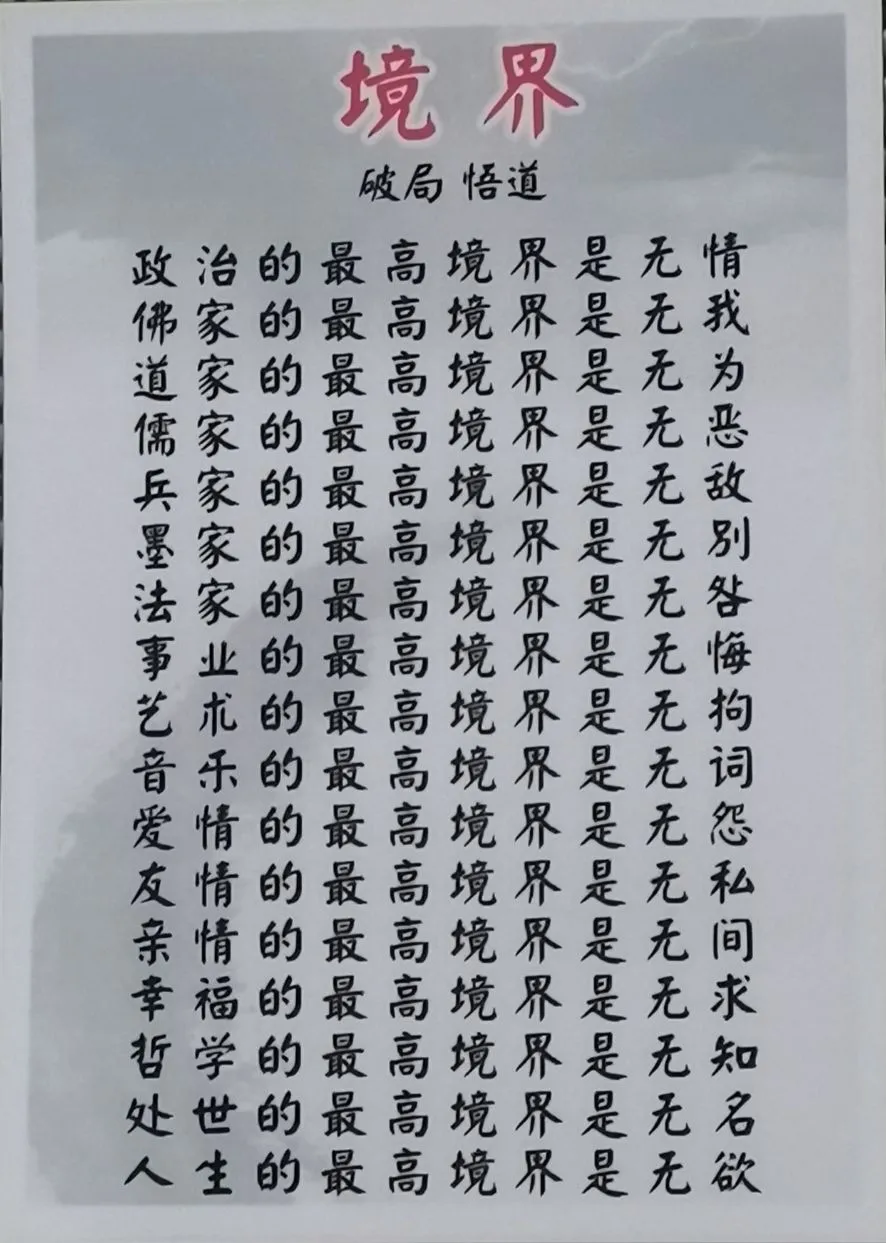 境界
破局 悟道
政治的最高境界是无情
佛家的最高境界是无我
道家的最高境界是无为
儒家的最高境界是无恶
兵家的最高境界是无敌
墨家的最高境界是无别
法家的最高境界是无咎
事业的最高境界是无悔
艺术的最高境界是无拘
音乐的最高境界是无词
爱情的最高境界是无怨
友情的最高境界是无私
亲情的最高境界是无间
幸福的最高境界是无求
哲学的最高境界是无知
处世的最高境界是无名
人生的最高境界是无欲